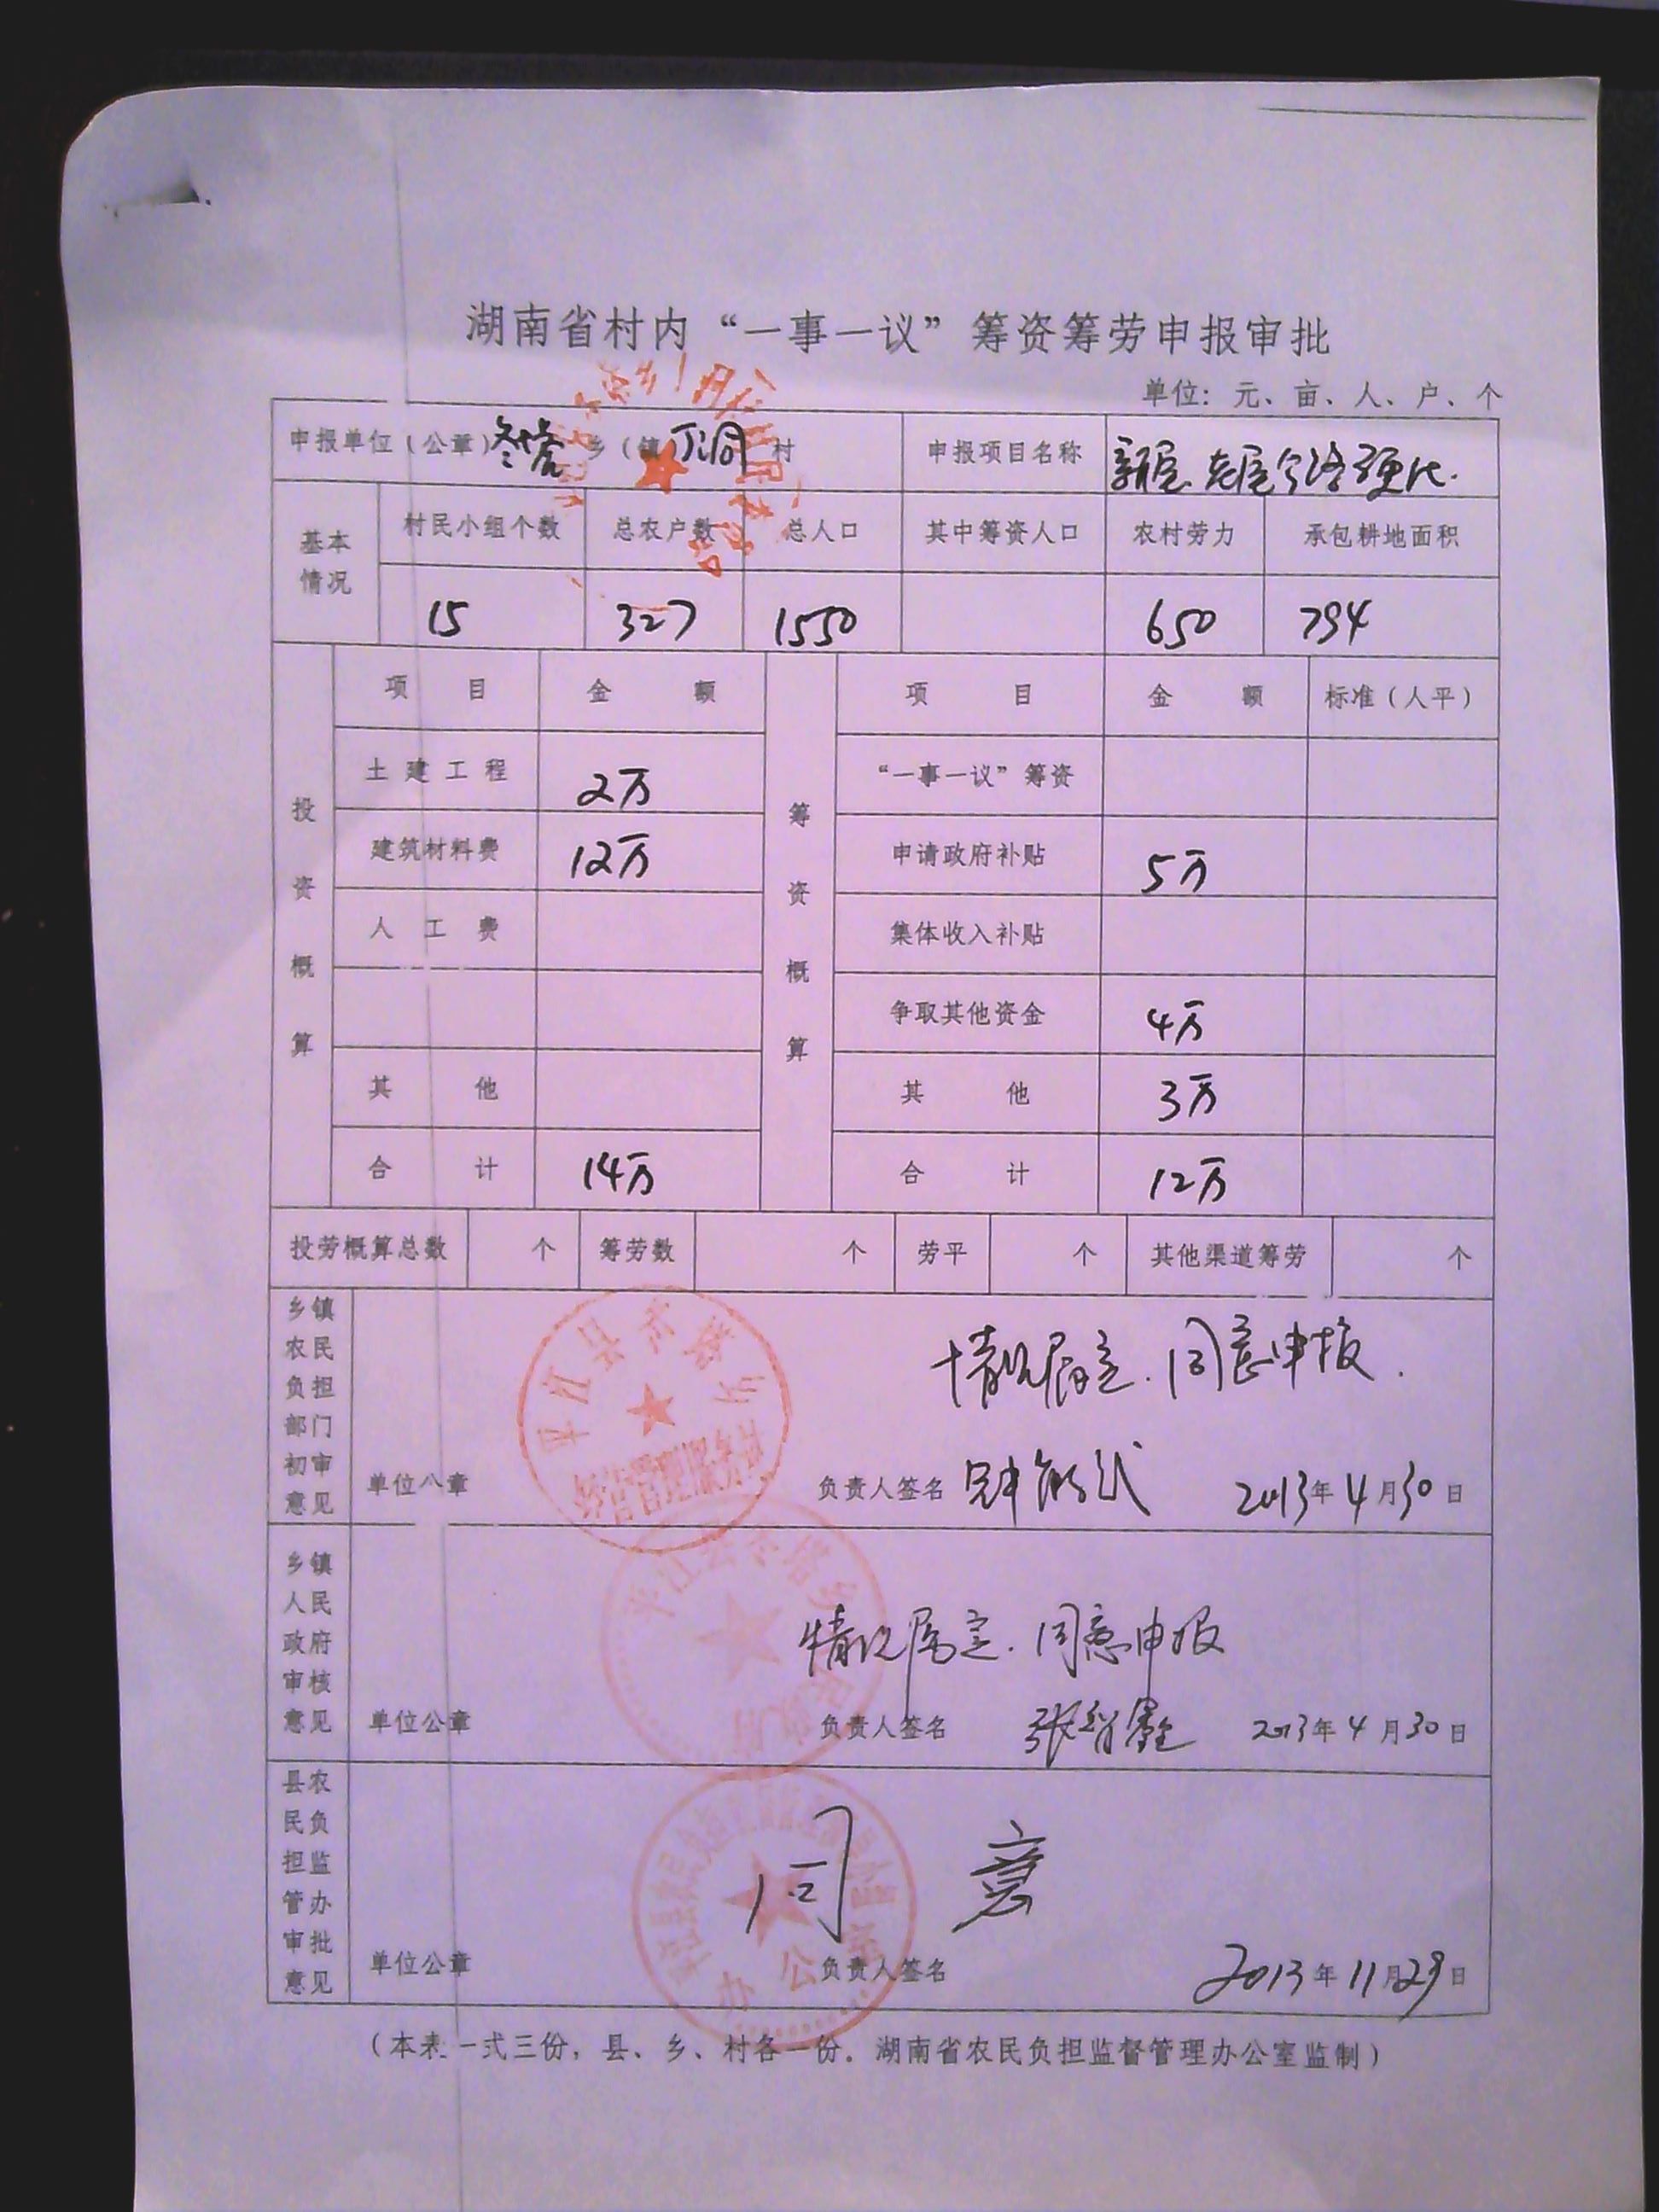 湖南省村内“一事一议”筹资筹劳申报审批
单位：元、亩、人、户、个
申报单位（公章）冬塔乡（镇丁洞村 申报项目名称 新屋、老屋公路硬化.
基本情况 村民小组个数 总农户数 总人口 其中筹资人口 农村劳力 承包耕地面积
15 327 1550 650 794
投资概算 项目 金额 筹资概算 项目 金额 标准（人平）
土建工程 2万 “一事一议”筹资
建筑材料费 12万 申请政府补贴 5万
人工费 集体收入补贴
争取其他资金 4万
其他 其他 3万
合计 14万 合计 12万
投劳概算总数 个 筹劳数 个 劳平 个 其他渠道筹劳 个
乡镇农民负担部门初审意见
情况属实.同意申报.
单位公章 负责人签名 2013年4月30日
平江县冬塔乡
经营管理服务站
乡镇人民政府审核意见
情况属实.同意申报
单位公章 负责人签名 2013年4月30日
平江县冬塔乡人民政府
县农民负担监管办审批意见
同意
单位公章 负责人签名 2013年11月29日
办公
（本表一式三份，县、乡、村各一份．湖南省农民负担监督管理办公室监制）